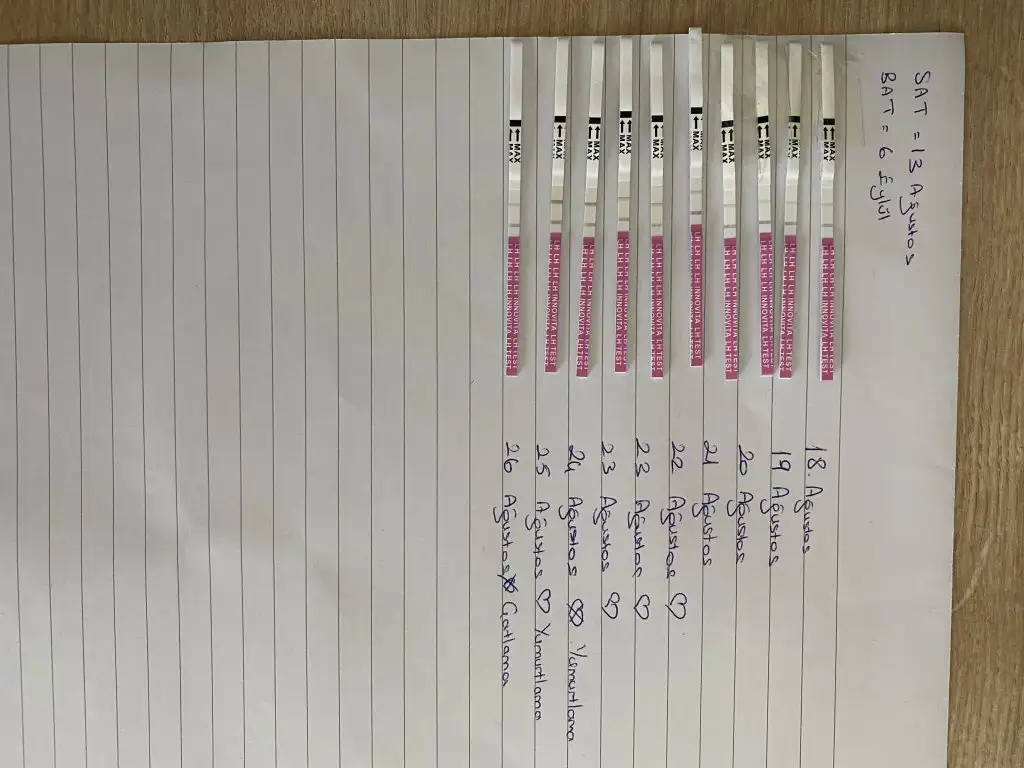 SAT = 13 Ağustos
BAT = 6 Eylül
MAX LH LH LH LH INNOVITA LH TEST
18. Ağustos
19 Ağustos
20 Ağustos
21 Ağustos
22 Ağustos ♡
23 Ağustos ♡
23 Ağustos ♡
24 Ağustos Yumurtlama
25 Ağustos ♡ Yumurtlama
26 Ağustos Çatlama